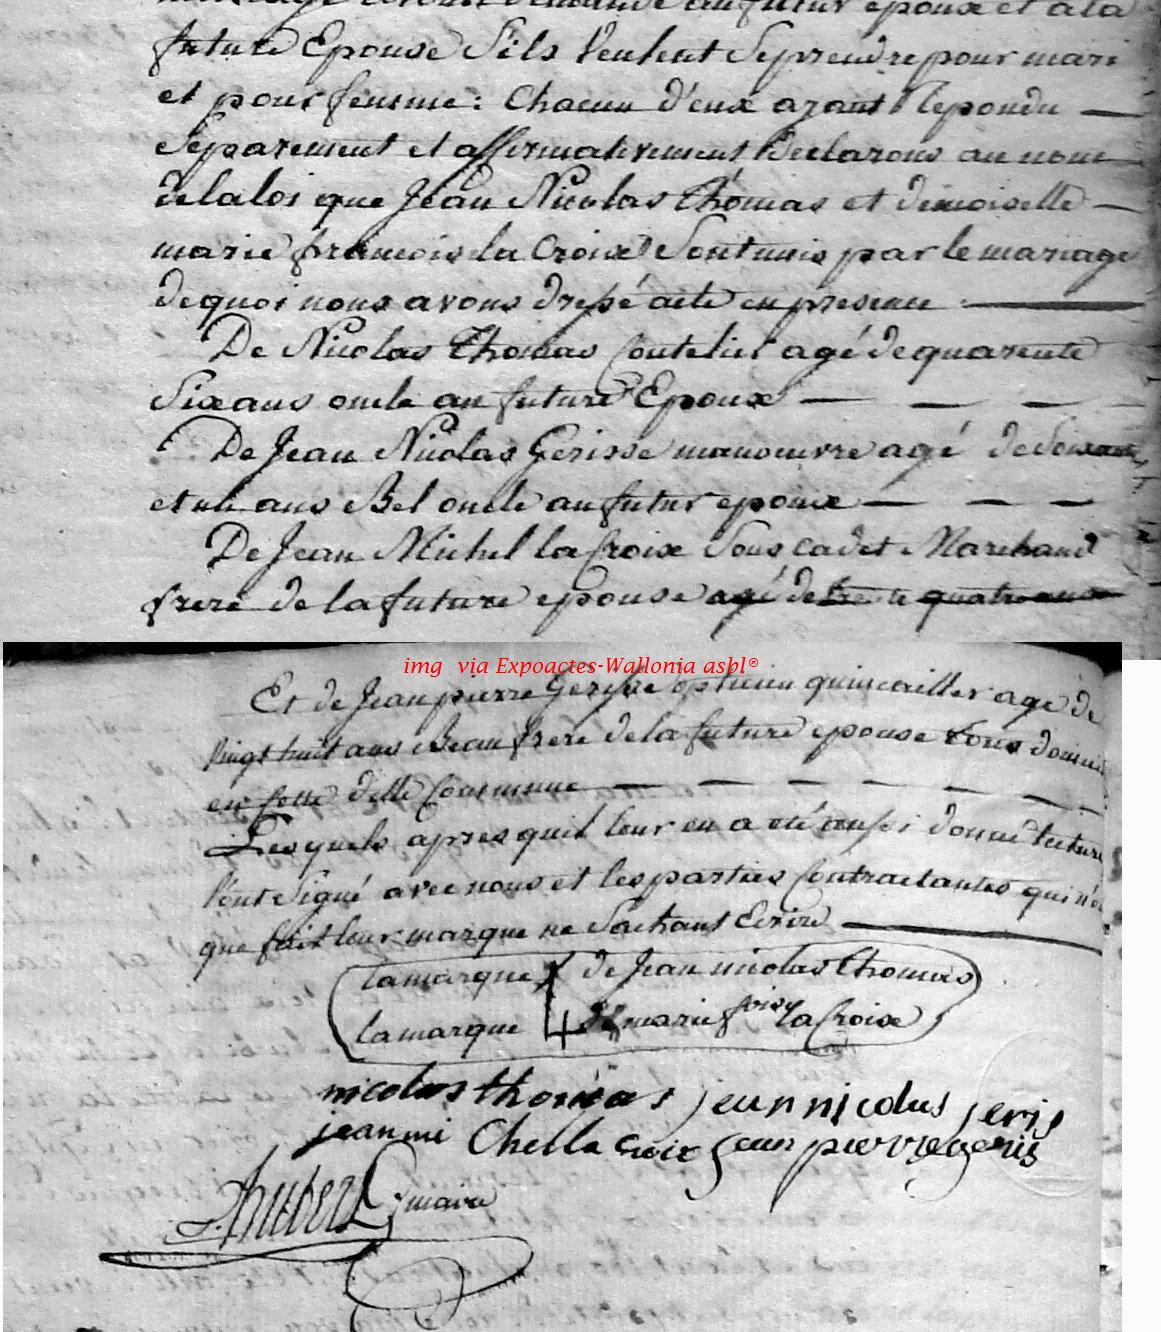 mariage avons demandé au futur epoux et a la
future Epouse S'ils Veulent Se prendre pour mari
et pour femme: Chacun d'eux ayant Repondu
Séparement et affirmativement Declarons au nom
de la loi que Jean Nicolas Thomas et demoiselle
marie francois la Croix Sont unis par le mariage
de quoi nous avons dressé acte en presence
De Nicolas Thomas Coutelier agé de quarente
Six ans oncle au future Epoux
De Jean Nicolas Gerisse manoeuvre agé de Soixante
et un ans Bel oncle au futur epoux
De Jean Michel la Croix Sous cadet Marchand
frere de la future epouse agé de trente quatre ans
img via Expoactes-Wallonia asbl®
Et de Jean pierre Gerisse opticien quincailler age de
Vingt huit ans Beau frere de la future epouse tous domicil
en cette ditte Commune
Lesquels apres quil leur en a été aussi donné lecture
l'ont Signé avec nous et les parties Contractantes qui n'on
que fait leur marque ne Sachant Ecrire
la marque de Jean nicolas Thomas
la marque de marie fçoise la Croix
nicolas thomas jean nicolas jeris
jean mi Chel la croix jean pierre geris
maire